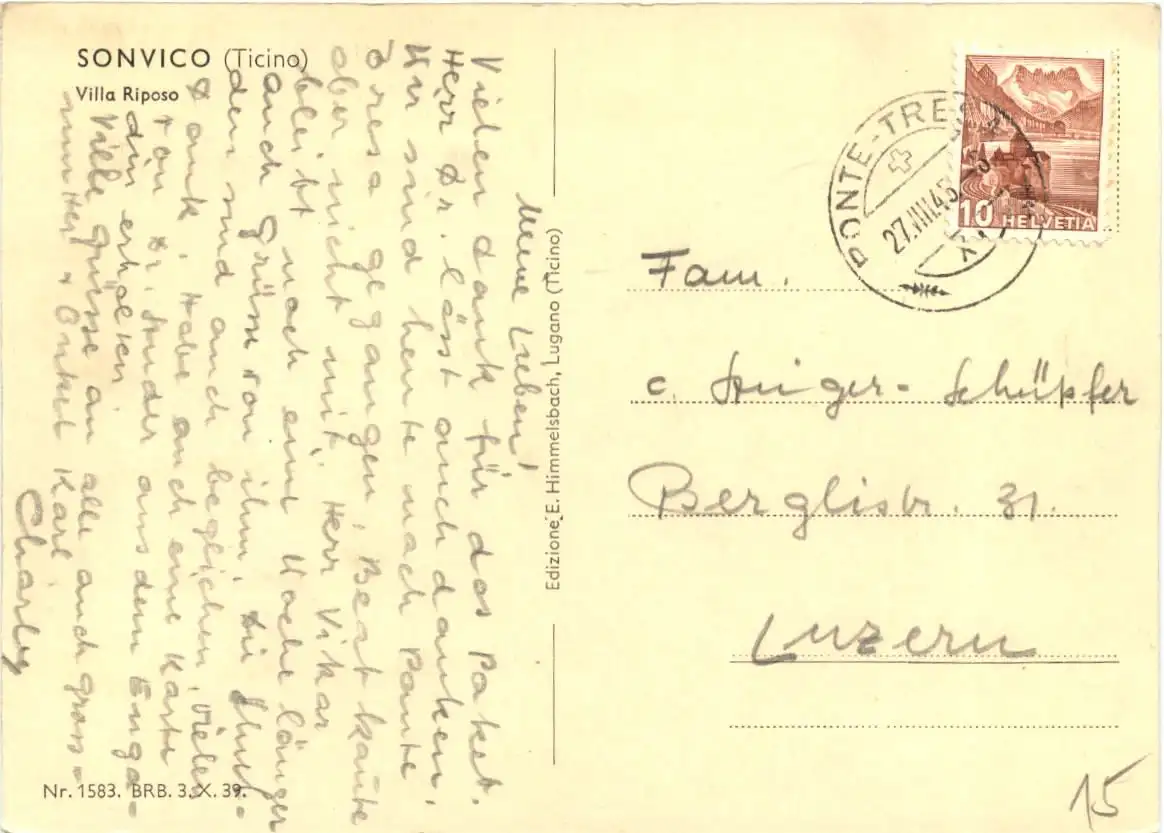 SONVICO (Ticino)
Villa Riposo
Meine Lieben!
Vielen Dank für das Paket.
Herr Dr. lässt auch danken.
Wir sind heute nach Ponte
Tresa gegangen. Beat konnte
aber nicht mit. Herr Vikar
bleibt noch eine Woche länger
auch Grüsse von ihm. Die
den sind auch beglichen. Vielen
Dank. Habe auch eine Karte
von Dr. Studer aus dem Enga-
din erhalten.
Viele Grüsse an alle auch Gross-
mutter + Onkel Karl
Charley
Nr. 1583. BRB. 3. X. 39.
Edizione E. Himmelsbach, Lugano (Ticino)
PONTE-TRESA
27.VIII.43
10 HELVETIA
Fam.
c. Steiger-Schüpfer
Berglistr. 31.
Luzern
15